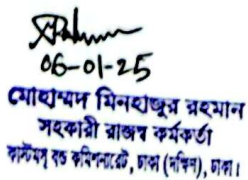 06-01-25
মোহাম্মদ মিনহাজুর রহমান
সহকারী রাজস্ব কর্মকর্তা
কাস্টমস্ বন্ড কমিশনারেট, ঢাকা (দক্ষিণ), ঢাকা।